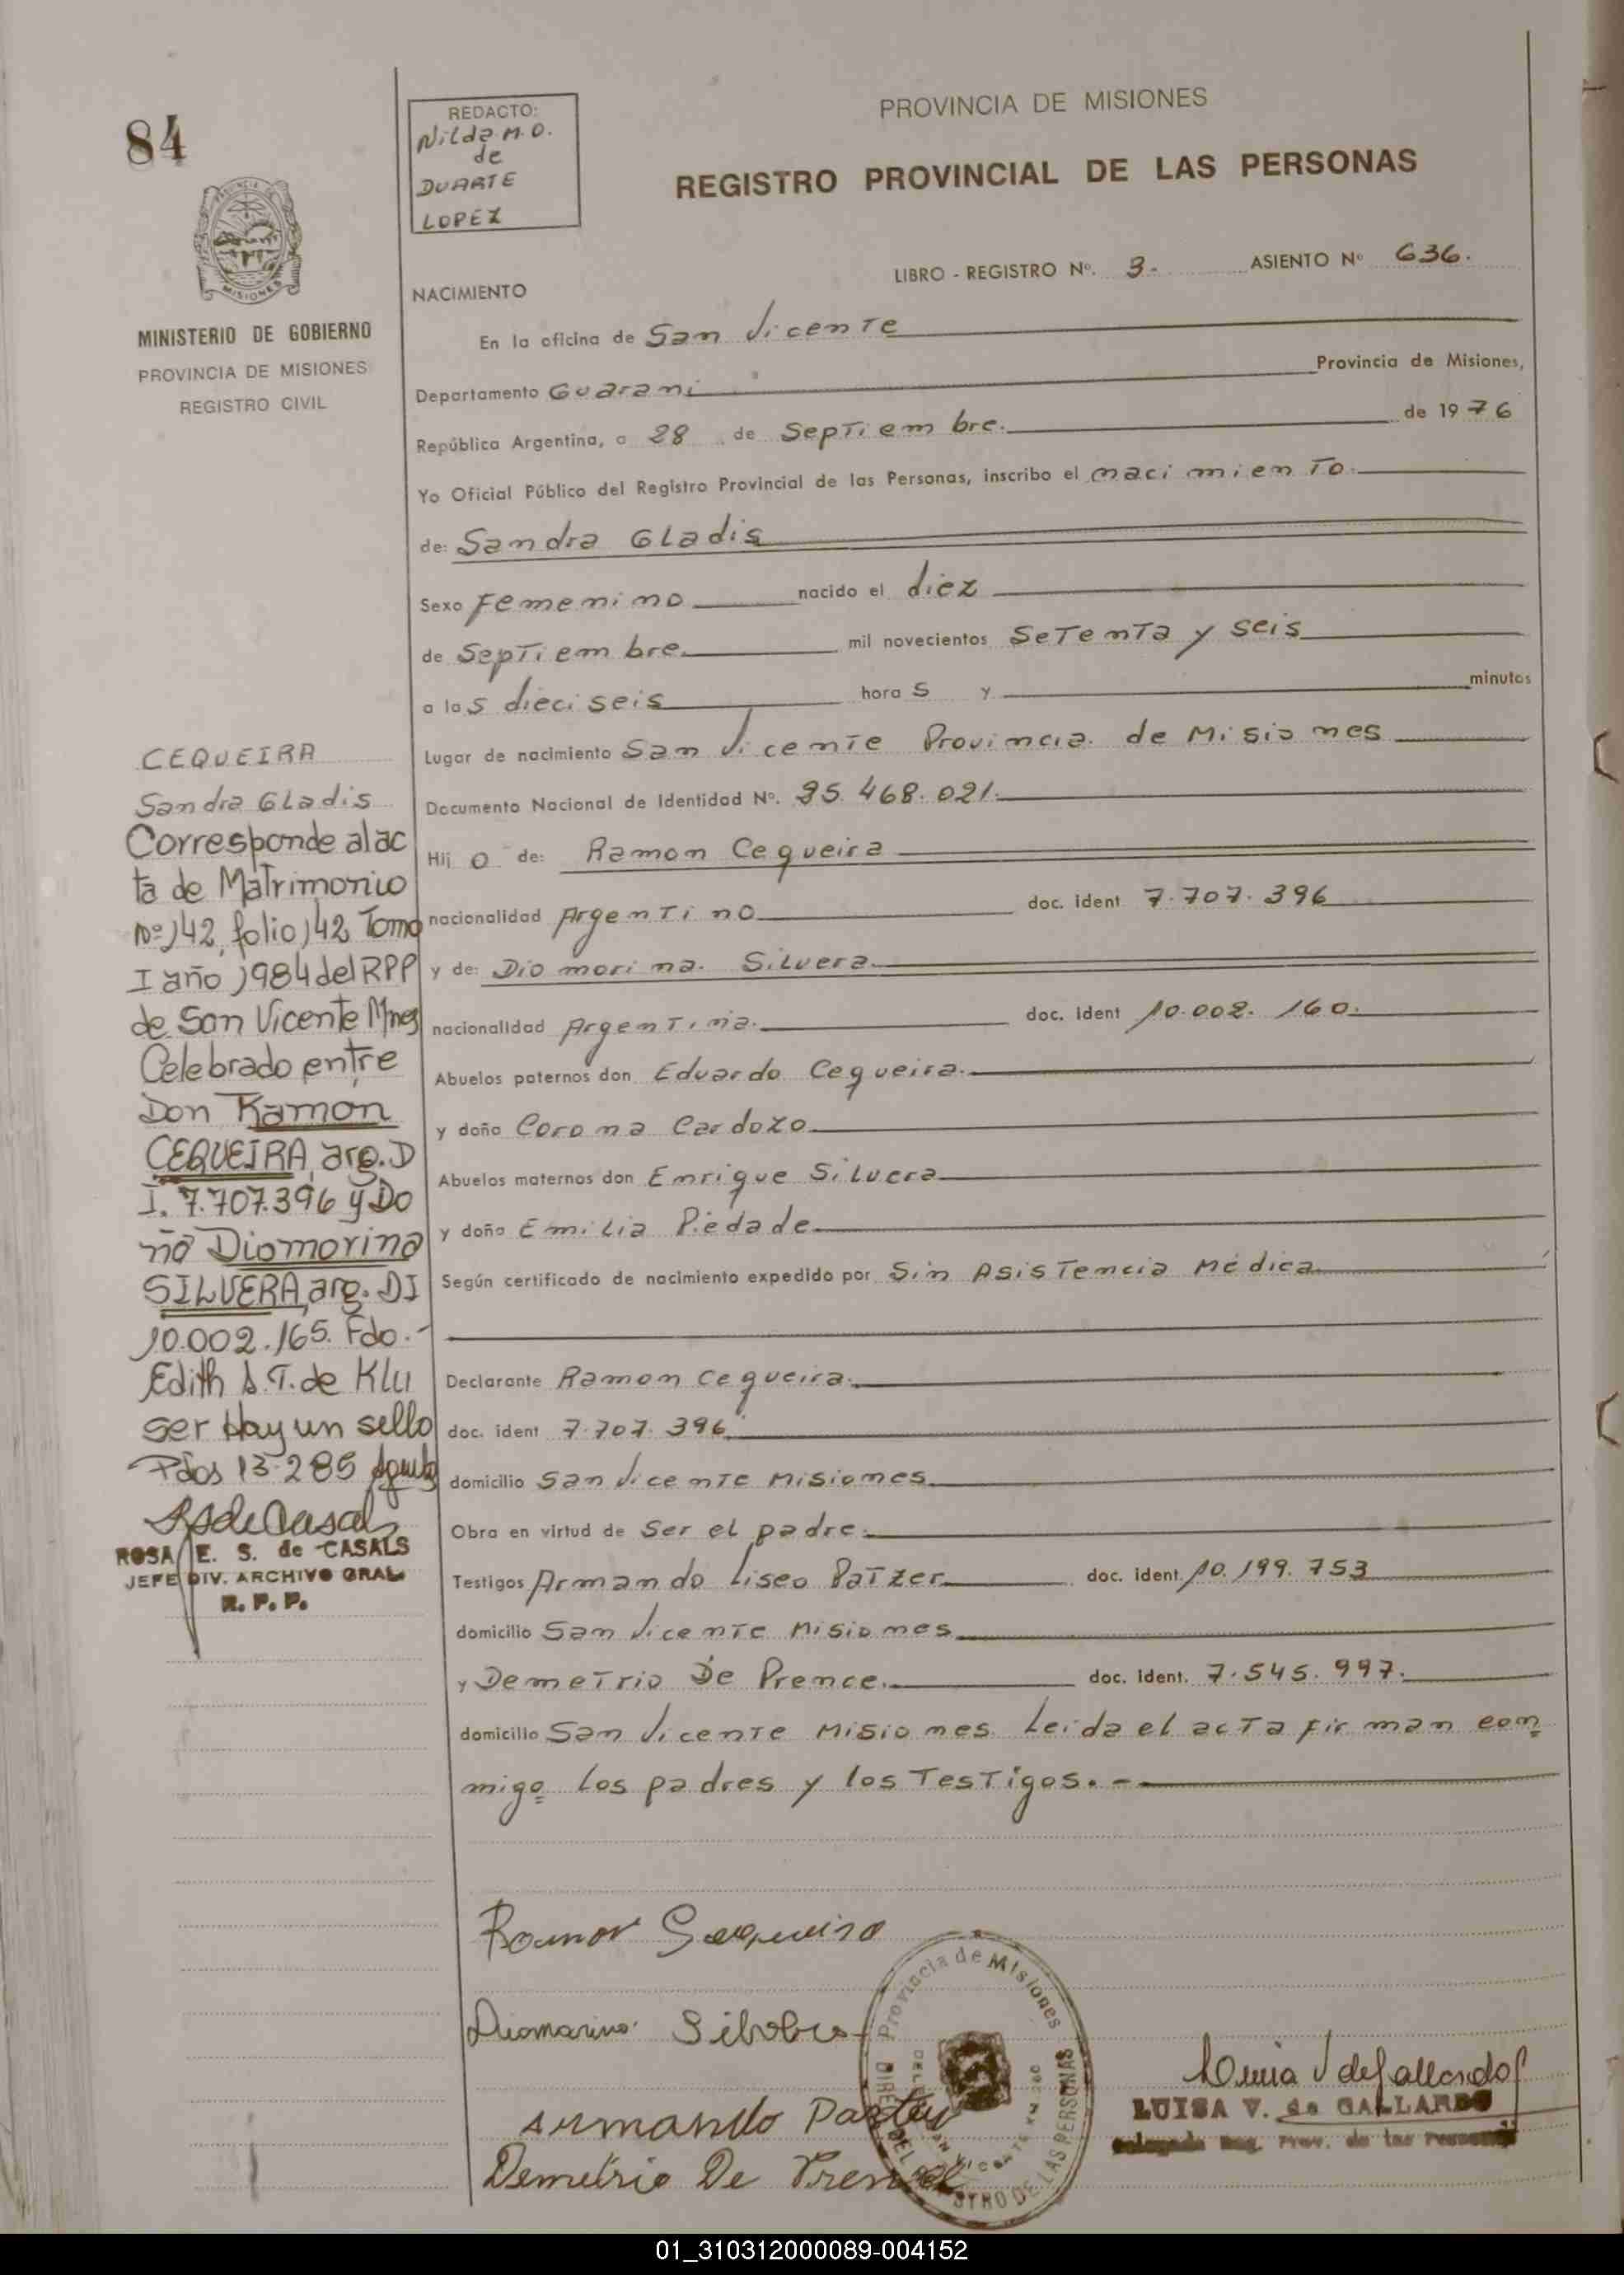 84
REDACTO:
Nilda M. O.
de
DUARTE
LOPEZ
PROVINCIA DE MISIONES
REGISTRO PROVINCIAL DE LAS PERSONAS
MISIONES
MINISTERIO DE GOBIERNO
PROVINCIA DE MISIONES
REGISTRO CIVIL
LIBRO - REGISTRO Nº. 3- ASIENTO Nº 636.
NACIMIENTO
En la oficina de San Vicente
Departamento Guarani Provincia de Misiones,
República Argentina, a 28 de Septiembre. de 1976
Yo Oficial Público del Registro Provincial de las Personas, inscribo el nacimiento.
de: Sandra Gladis
Sexo Femenino nacido el diez
de Septiembre mil novecientos Setenta y seis
a las dieciseis horas y minutos
Lugar de nacimiento San Vicente Provincia de Misiones
Documento Nacional de Identidad Nº. 25.468.021.
Hijo de: Ramon Cequeira
nacionalidad Argentino doc. ident 7.707.396
y de: Diomorina. Silvera
nacionalidad Argentina. doc. ident 10.002.160.
Abuelos paternos don Eduardo Cequeira.
y doña Corona Cardozo
Abuelos maternos don Enrique Silvera
y doña Emilia Piedade
Según certificado de nacimiento expedido por Sin Asistencia Médica
Declarante Ramon Cequeira.
doc. ident 7.707.396
domicilio San Vicente Misiones
Obra en virtud de Ser el padre.
Testigos Armando Liseo Patzer doc. ident. 10.199.753
domicilio San Vicente Misiones
y Demetrio De Prence. doc. ident. 7.545.997.
domicilio San Vicente Misiones Leida el acta firman con
migo los padres y los Testigos. -
CEQUEIRA
Sandra Gladis
Corresponde al ac
ta de Matrimonio
Nº 142, folio 142 Tomo
I año 1984 del RPP
de San Vicente Mnes
Celebrado entre
Don Ramon
CEQUEIRA, arg. D
I. 7.707.396 y Do
ña Diomorina
SILVERA, arg. DI
10.002.165. Fdo.-
Edith S.T. de Klu
ser Hay un sello
Pdas 13-2-85
ROSA E. S. de CASALS
JEFE DIV. ARCHIVO GRAL
R. P. P.
Ramon Sequeira
Diomarina Silvera
Armando Patzer
Demetrio De Prence
Provincia de Misiones
Luisa V de Gallardo
LUISA V. de GALLARDO
Delegada Reg. Prov. de las Personas
01_310312000089-004152